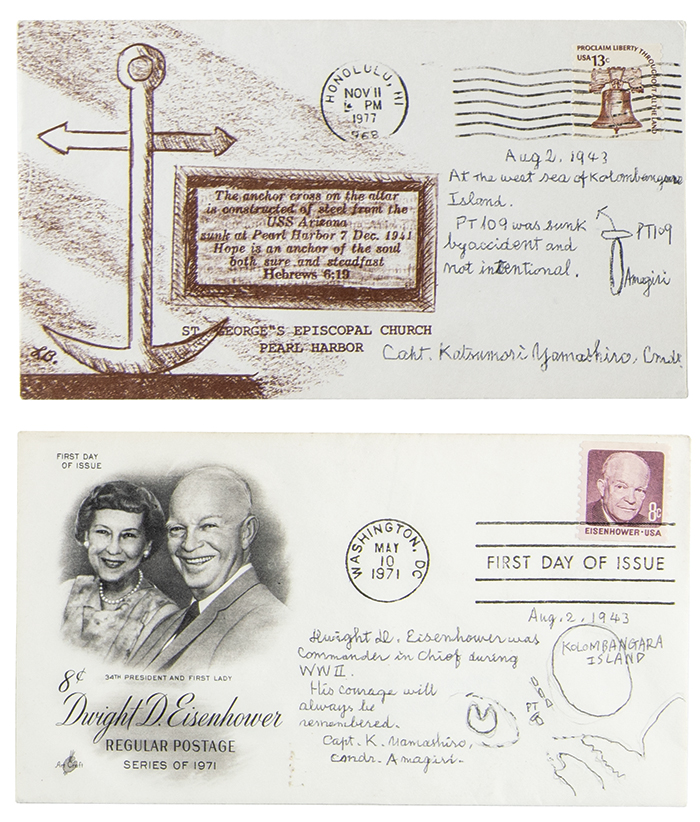 HONOLULU, HI
NOV 11
PM
1977
968
PROCLAIM LIBERTY THROUGHOUT ALL THE LAND
USA 13c
The anchor cross on the altar
is constructed of steel from the
USS Arizona
sunk at Pearl Harbor 7 Dec. 1941
Hope is an anchor of the soul
both sure and steadfast
Hebrews 6:19
ST. GEORGE"S EPISCOPAL CHURCH
PEARL HARBOR
Aug 2, 1943
At the west sea of Kolombangara
Island.
PT 109 was sunk
by accident and
not intentional.
PT109
Amagiri
Capt. Katsumori Yamashiro, Cmdr.
FIRST DAY
OF ISSUE
WASHINGTON, DC
MAY
10
1971
8c
EISENHOWER·USA
FIRST DAY OF ISSUE
34TH PRESIDENT AND FIRST LADY
8¢
Dwight D. Eisenhower
REGULAR POSTAGE
SERIES OF 1971
Art Craft
Aug. 2, 1943
Dwight D. Eisenhower was
Commander in Chief during
WW II.
His courage will
always be
remembered.
Capt. K. Yamashiro,
Cmdr. Amagiri.
KOLOMBANGARA
ISLAND
PT